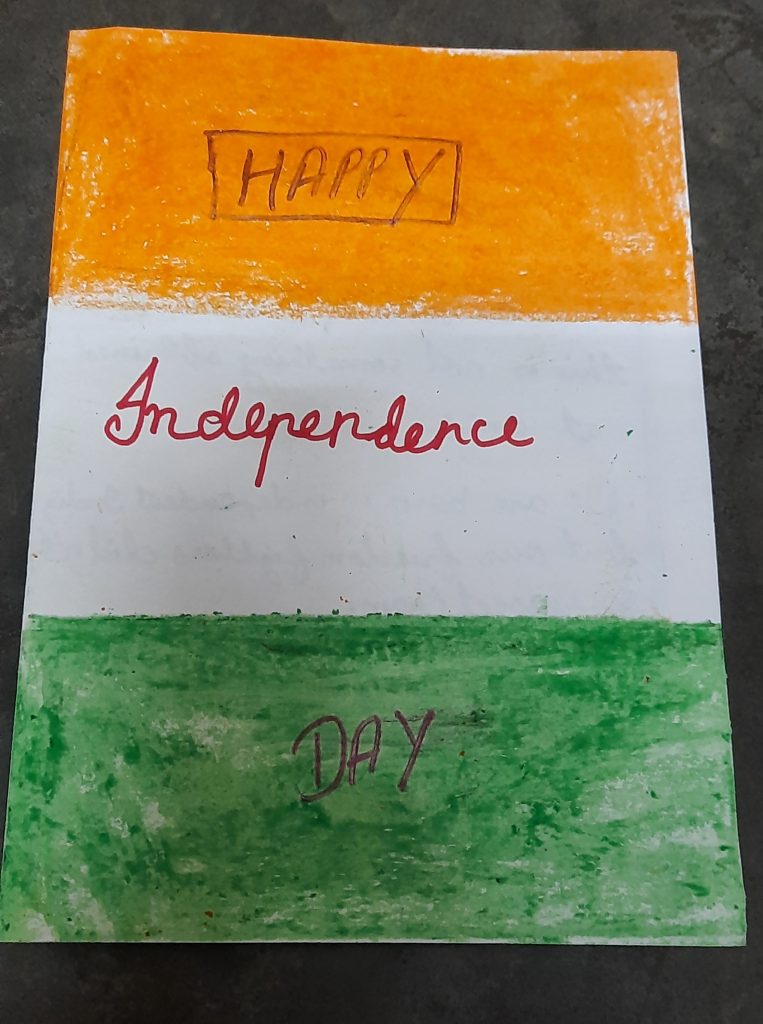 HAPPY
Independence
DAY